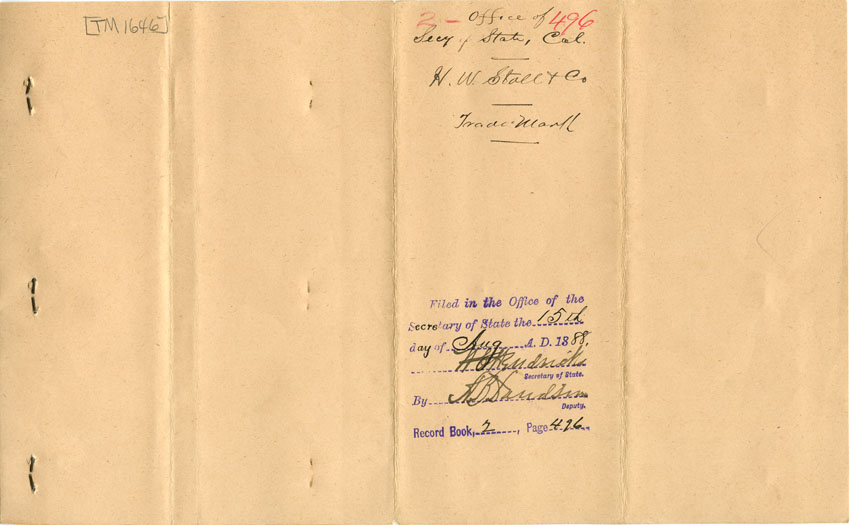 [TM 1646]
2 - Office of 496
Secy of State, Cal.
H. W. Stoll & Co
Trade-Mark
Filed in the Office of the
Secretary of State the 15th
day of Aug A. D. 1888.
W C Hendricks
Secretary of State.
By
Deputy.
Record Book, 2, Page 496.